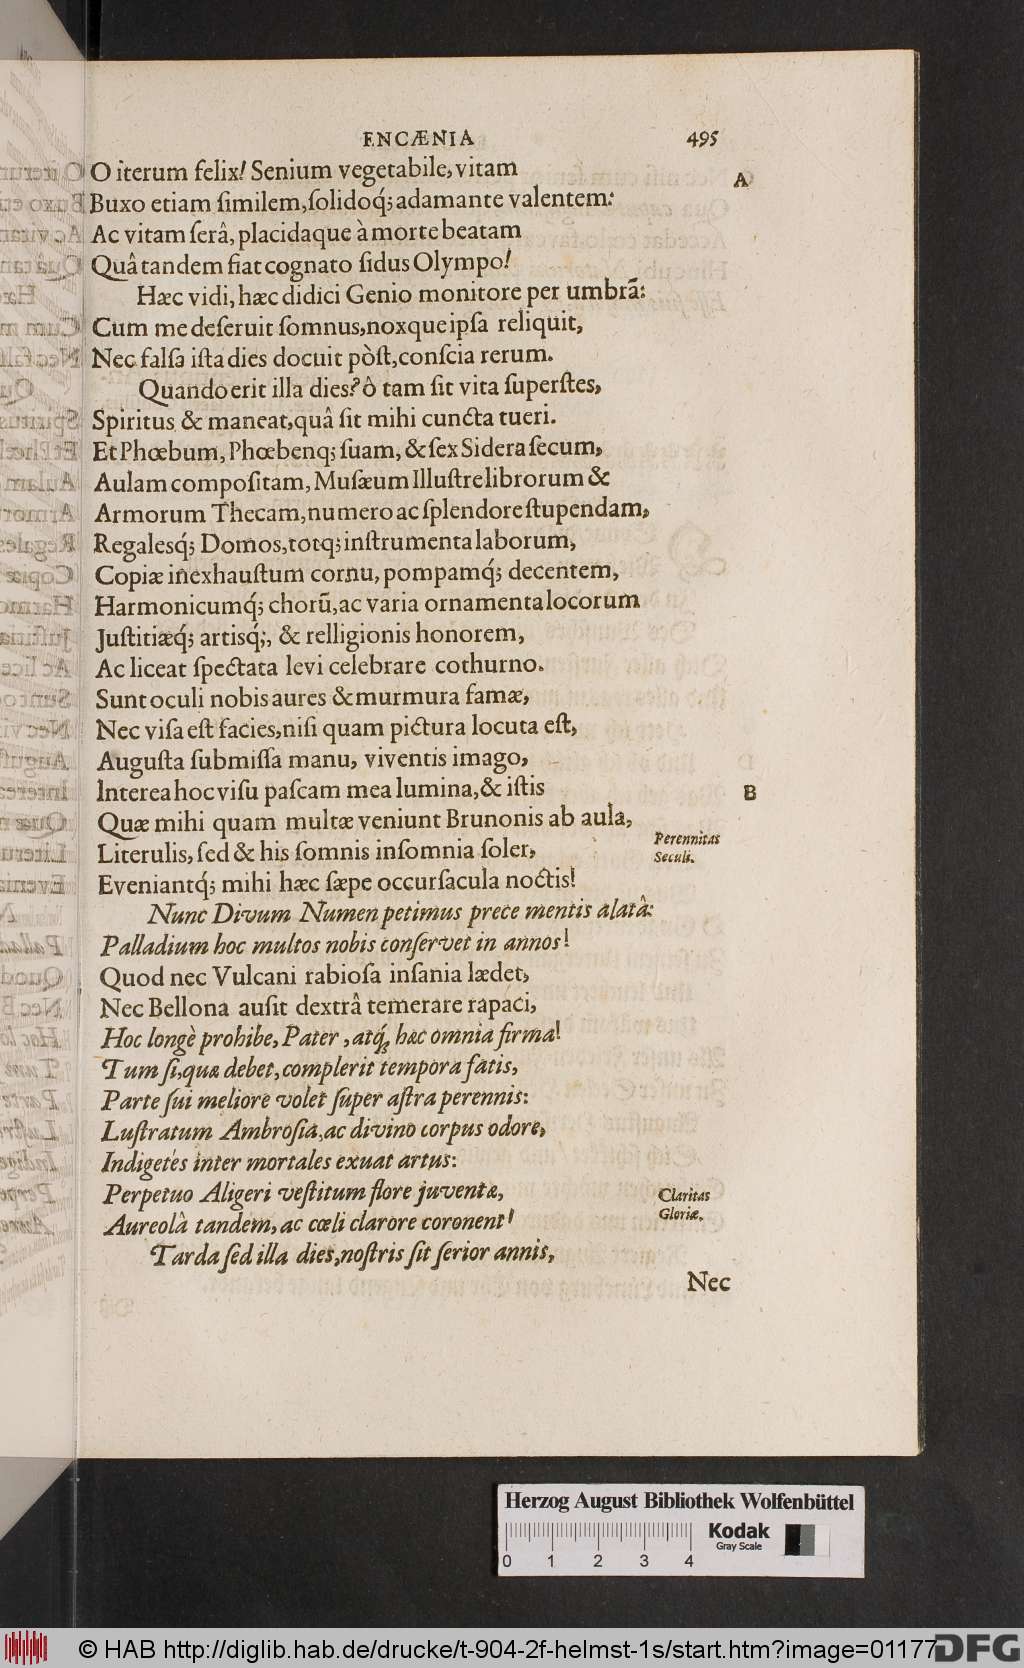 ENCÆNIA 495
O iterum felix! Senium vegetabile, vitam
A
Buxo etiam ſimilem, ſolidoq́; adamante valentem:
Ac vitam ſerâ, placidaque à morte beatam
Quâ tandem fiat cognato ſidus Olympo!
Hæc vidi, hæc didici Genio monitore per umbrã:
Cum me deſeruit ſomnus, noxque ipſa reliquit,
Nec falſa iſta dies docuit pòſt, conſcia rerum.
Quando erit illa dies? ô tam ſit vita ſuperſtes,
Spiritus & maneat, quâ ſit mihi cuncta tueri.
Et Phœbum, Phœbenq; ſuam, & ſex Sidera ſecum,
Aulam compoſitam, Muſæum Illuſtre librorum &
Armorum Thecam, numero ac ſplendore ſtupendam,
Regalesq́; Domos, totq; inſtrumenta laborum,
Copiæ inexhauſtum cornu, pompamq́; decentem,
Harmonicumq́; chorũ, ac varia ornamenta locorum
Juſtitiæq́; artisq́;, & relligionis honorem,
Ac liceat ſpectata levi celebrare cothurno.
Sunt oculi nobis aures & murmura famæ,
Nec viſa eſt facies, niſi quam pictura locuta eſt,
Auguſta ſubmiſſa manu, viventis imago,
Interea hoc viſu paſcam mea lumina, & iſtis
B
Quæ mihi quam multæ veniunt Brunonis ab aula,
Literulis, ſed & his ſomnis inſomnia ſoler,
Perennitas
Seculi.
Eveniantq́; mihi hæc ſæpe occurſacula noctis!
Nunc Divum Numen petimus prece mentis alatâ:
Palladium hoc multos nobis conſervet in annos!
Quod nec Vulcani rabioſa inſania lædet,
Nec Bellona auſit dextrâ temerare rapaci,
Hoc longè prohibe, Pater, atq́; hæc omnia firma!
Tum ſi, quæ debet, complerit tempora fatis,
Parte ſui meliore volet ſuper aſtra perennis:
Luſtratum Ambroſia, ac divino corpus odore,
Indigetes inter mortales exuat artus:
Perpetuo Aligeri veſtitum flore juventæ,
Claritas
Gloriæ.
Aureolâ tandem, ac cœli clarore coronent!
Tarda ſed illa dies, noſtris ſit ſerior annis,
Nec
Herzog August Bibliothek Wolfenbüttel
0 1 2 3 4
Kodak
Gray Scale
© HAB http://diglib.hab.de/drucke/t-904-2f-helmst-1s/start.htm?image=01177
DFG